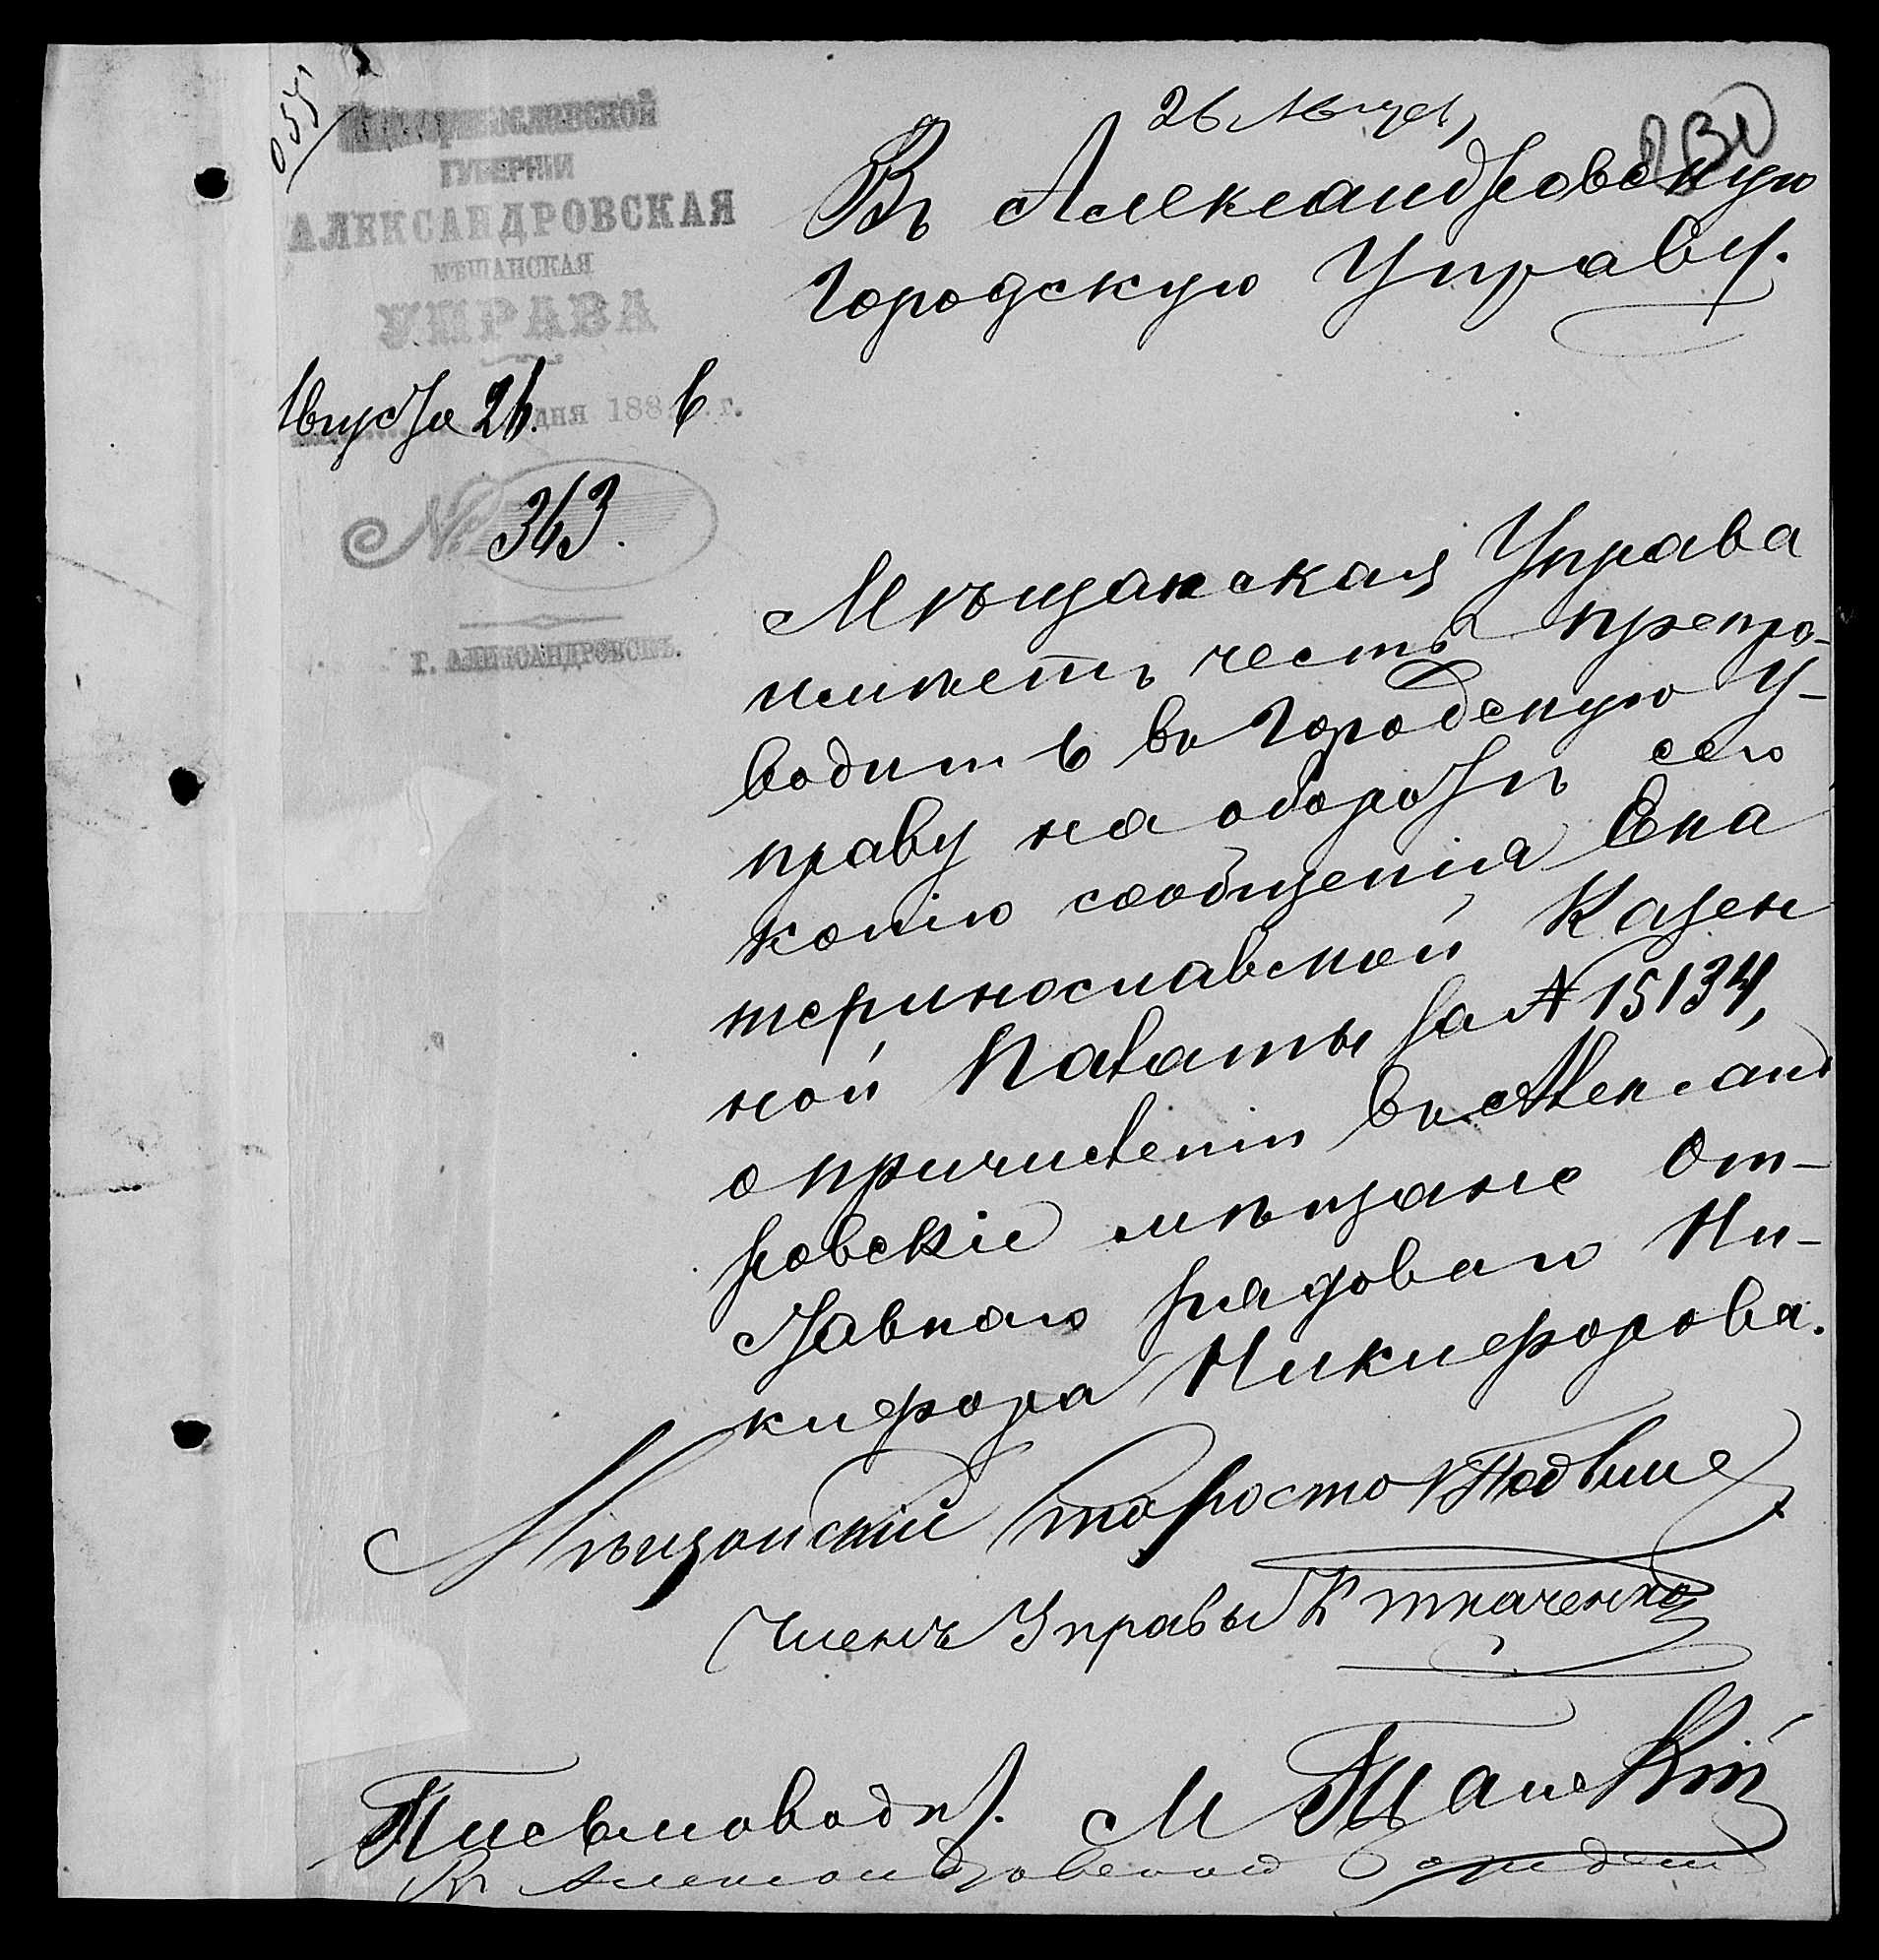 Екатеринославской
ГУБЕРНІИ
АЛЕКСАНДРОВСКАЯ
МѢЩАНСКАЯ
УПРАВА
Августа 26. дня 1886 г.
№ 363.
г. АЛЕКСАНДРОВСКЪ.
26 Август
Въ Александровскую
Городскую Управу.
Мѣщанская Управа
имѣетъ честь препро-
водить въ Городскую У-
праву на оборотѣ сего
копію сообщенія Ека
теринославской Казен
ной Палаты за № 15134,
о причисленіи въ Александ
ровскіе мѣщане От-
ставнаго рядоваго Ни-
кифора Никифорова.
Мѣщанскій Староста
Членъ Управы К Ткаченко
Письмовод. М
Въ Александровской